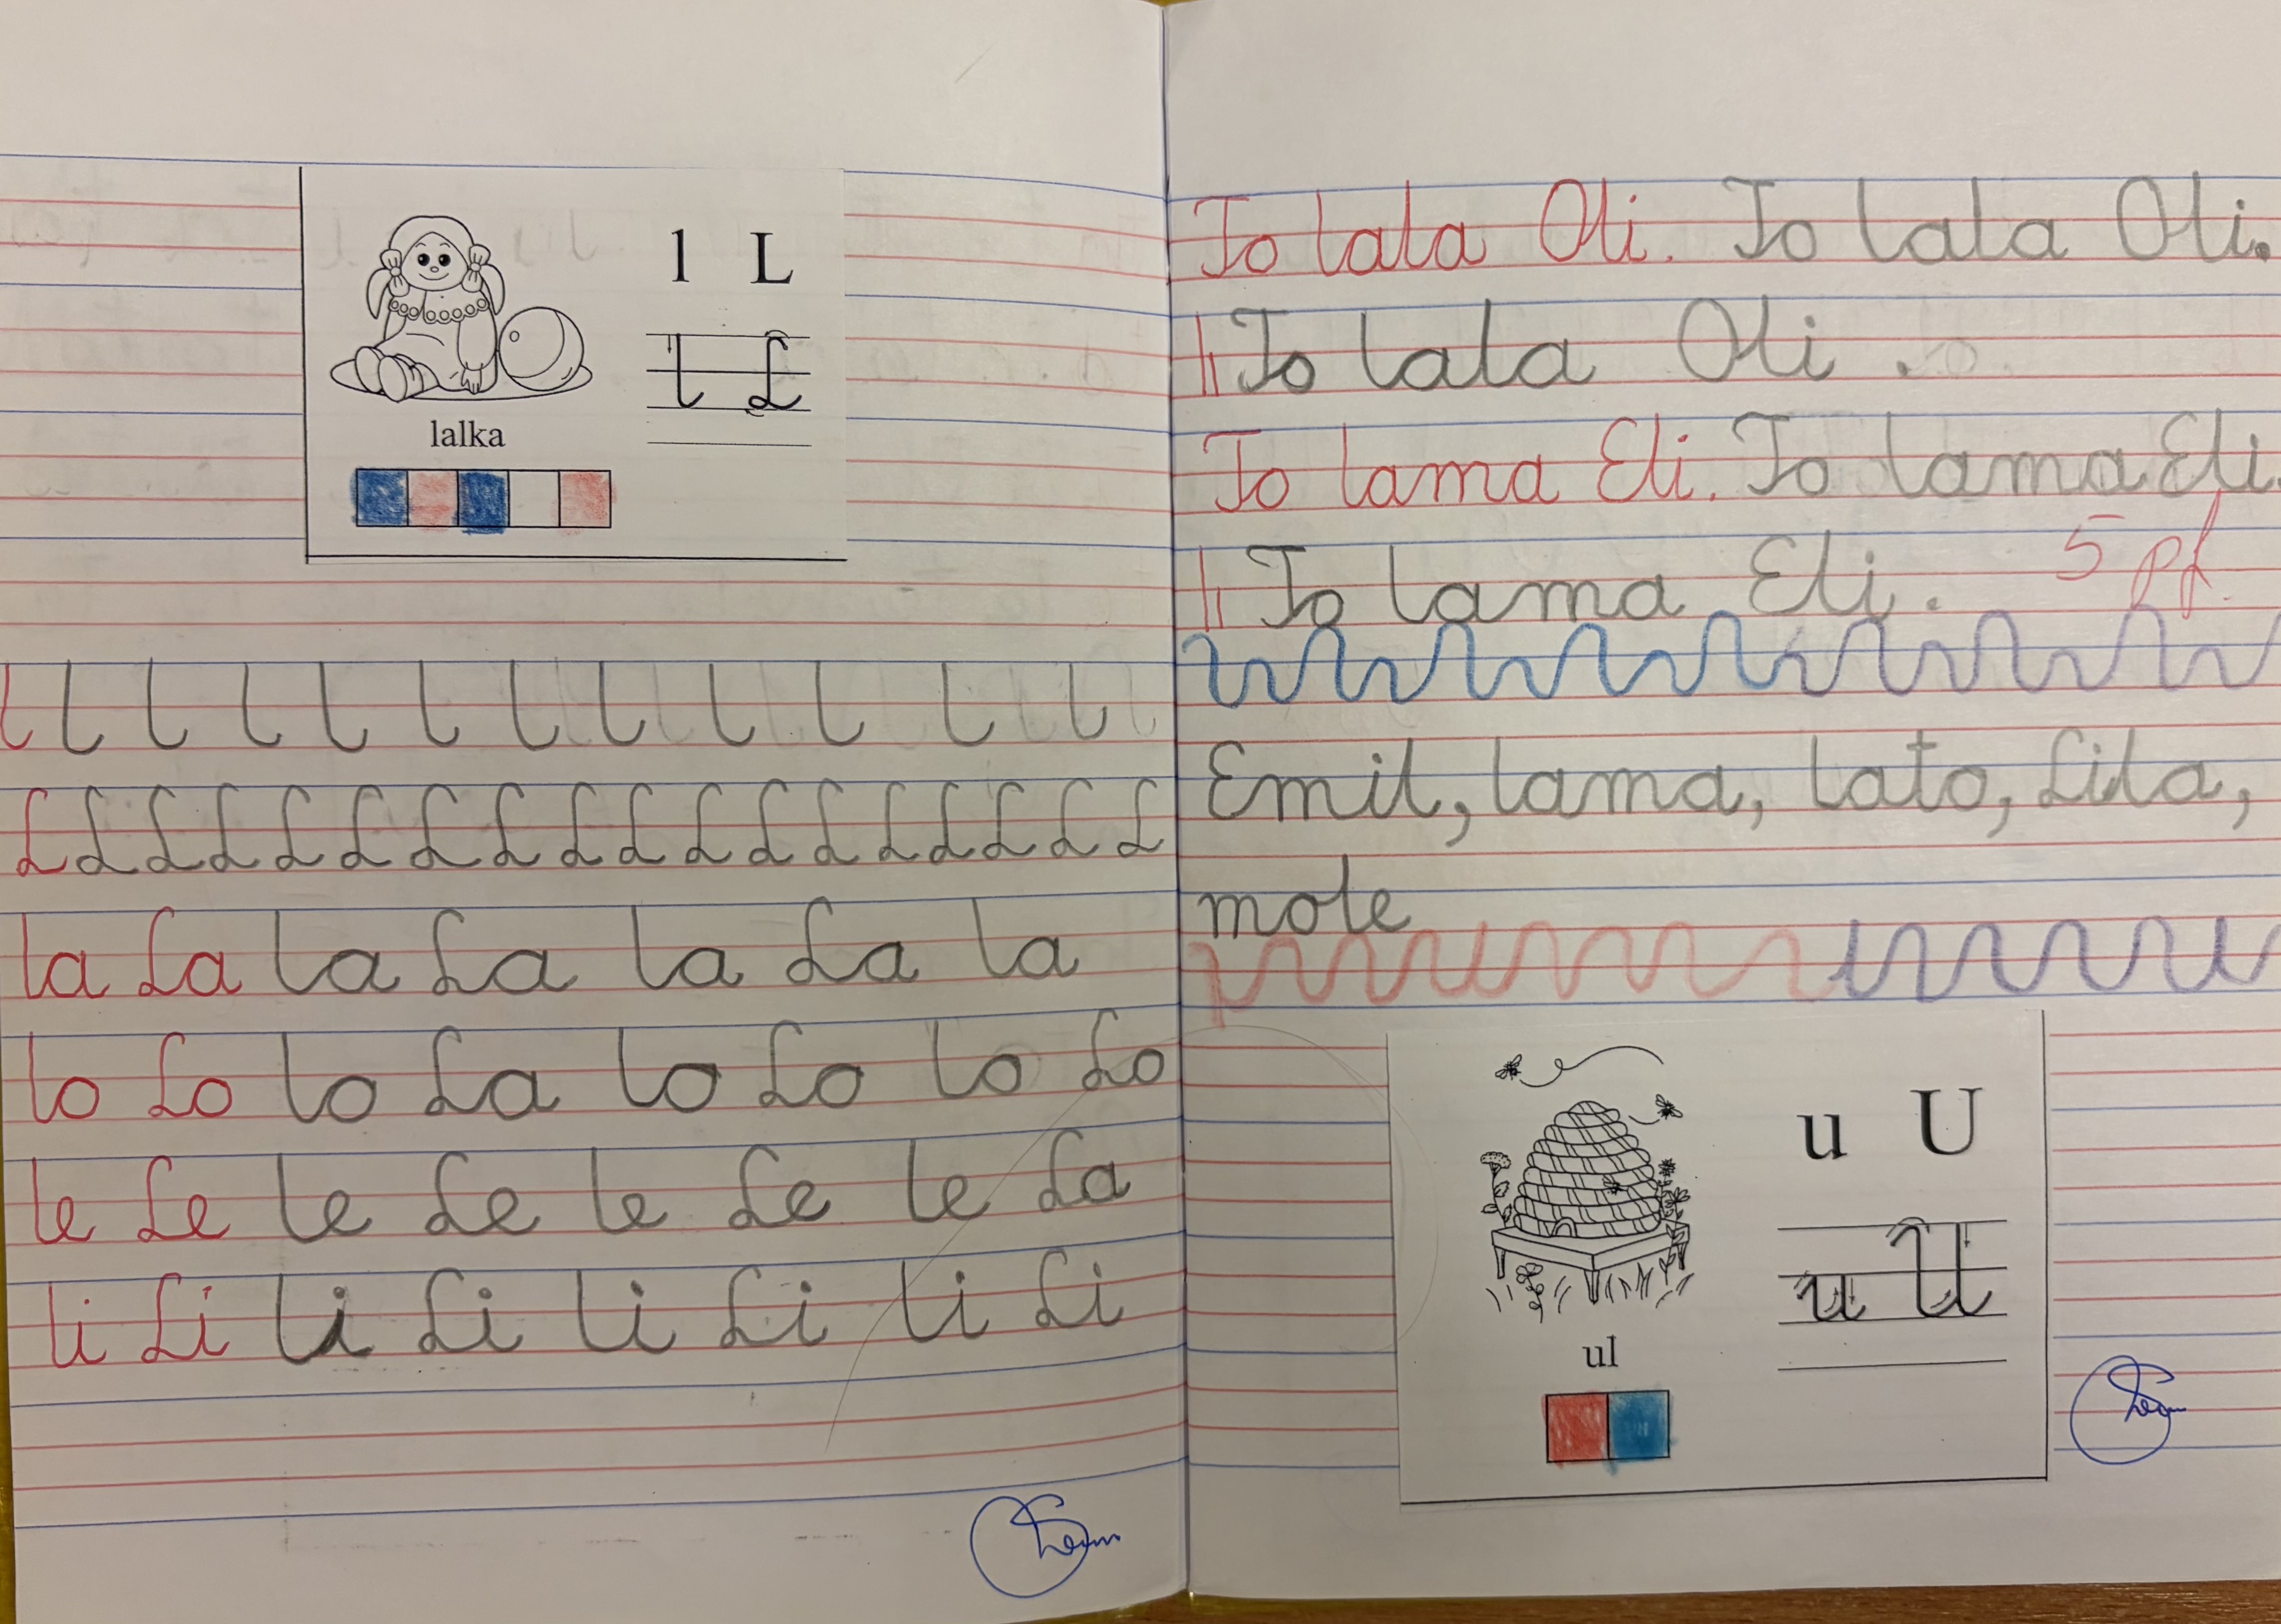 l L
l L
lalka
l l l l l l l l l l l l
L L L L L L L L L L L L L L L L L L
la La la La la La la
lo Lo lo La lo Lo lo Lo
le Le le Le le Le le La
li Li li Li li Li li Li
To lala Oli. To lala Oli.
To lala Oli.
To lama Eli. To lama Eli.
To lama Eli. 5 pł.
Emil, lama, lato, Lila,
mole
u U
u U
ul